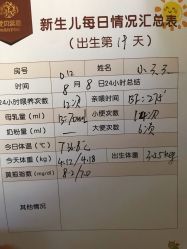 新生儿每日情况汇总表
（出生第19天）
房号 D12 姓名 小
8月8日24小时总结
24小时喂养次数 12次 亲喂时间
母乳量（ml） 小便次数
奶粉量（ml） 大便次数 6次
今日体温（℃） 36.8℃
今天体重（kg） 4.12/4.18 出生体重
黄疸指数（mg/dl） 8.2/7.0
其他情况